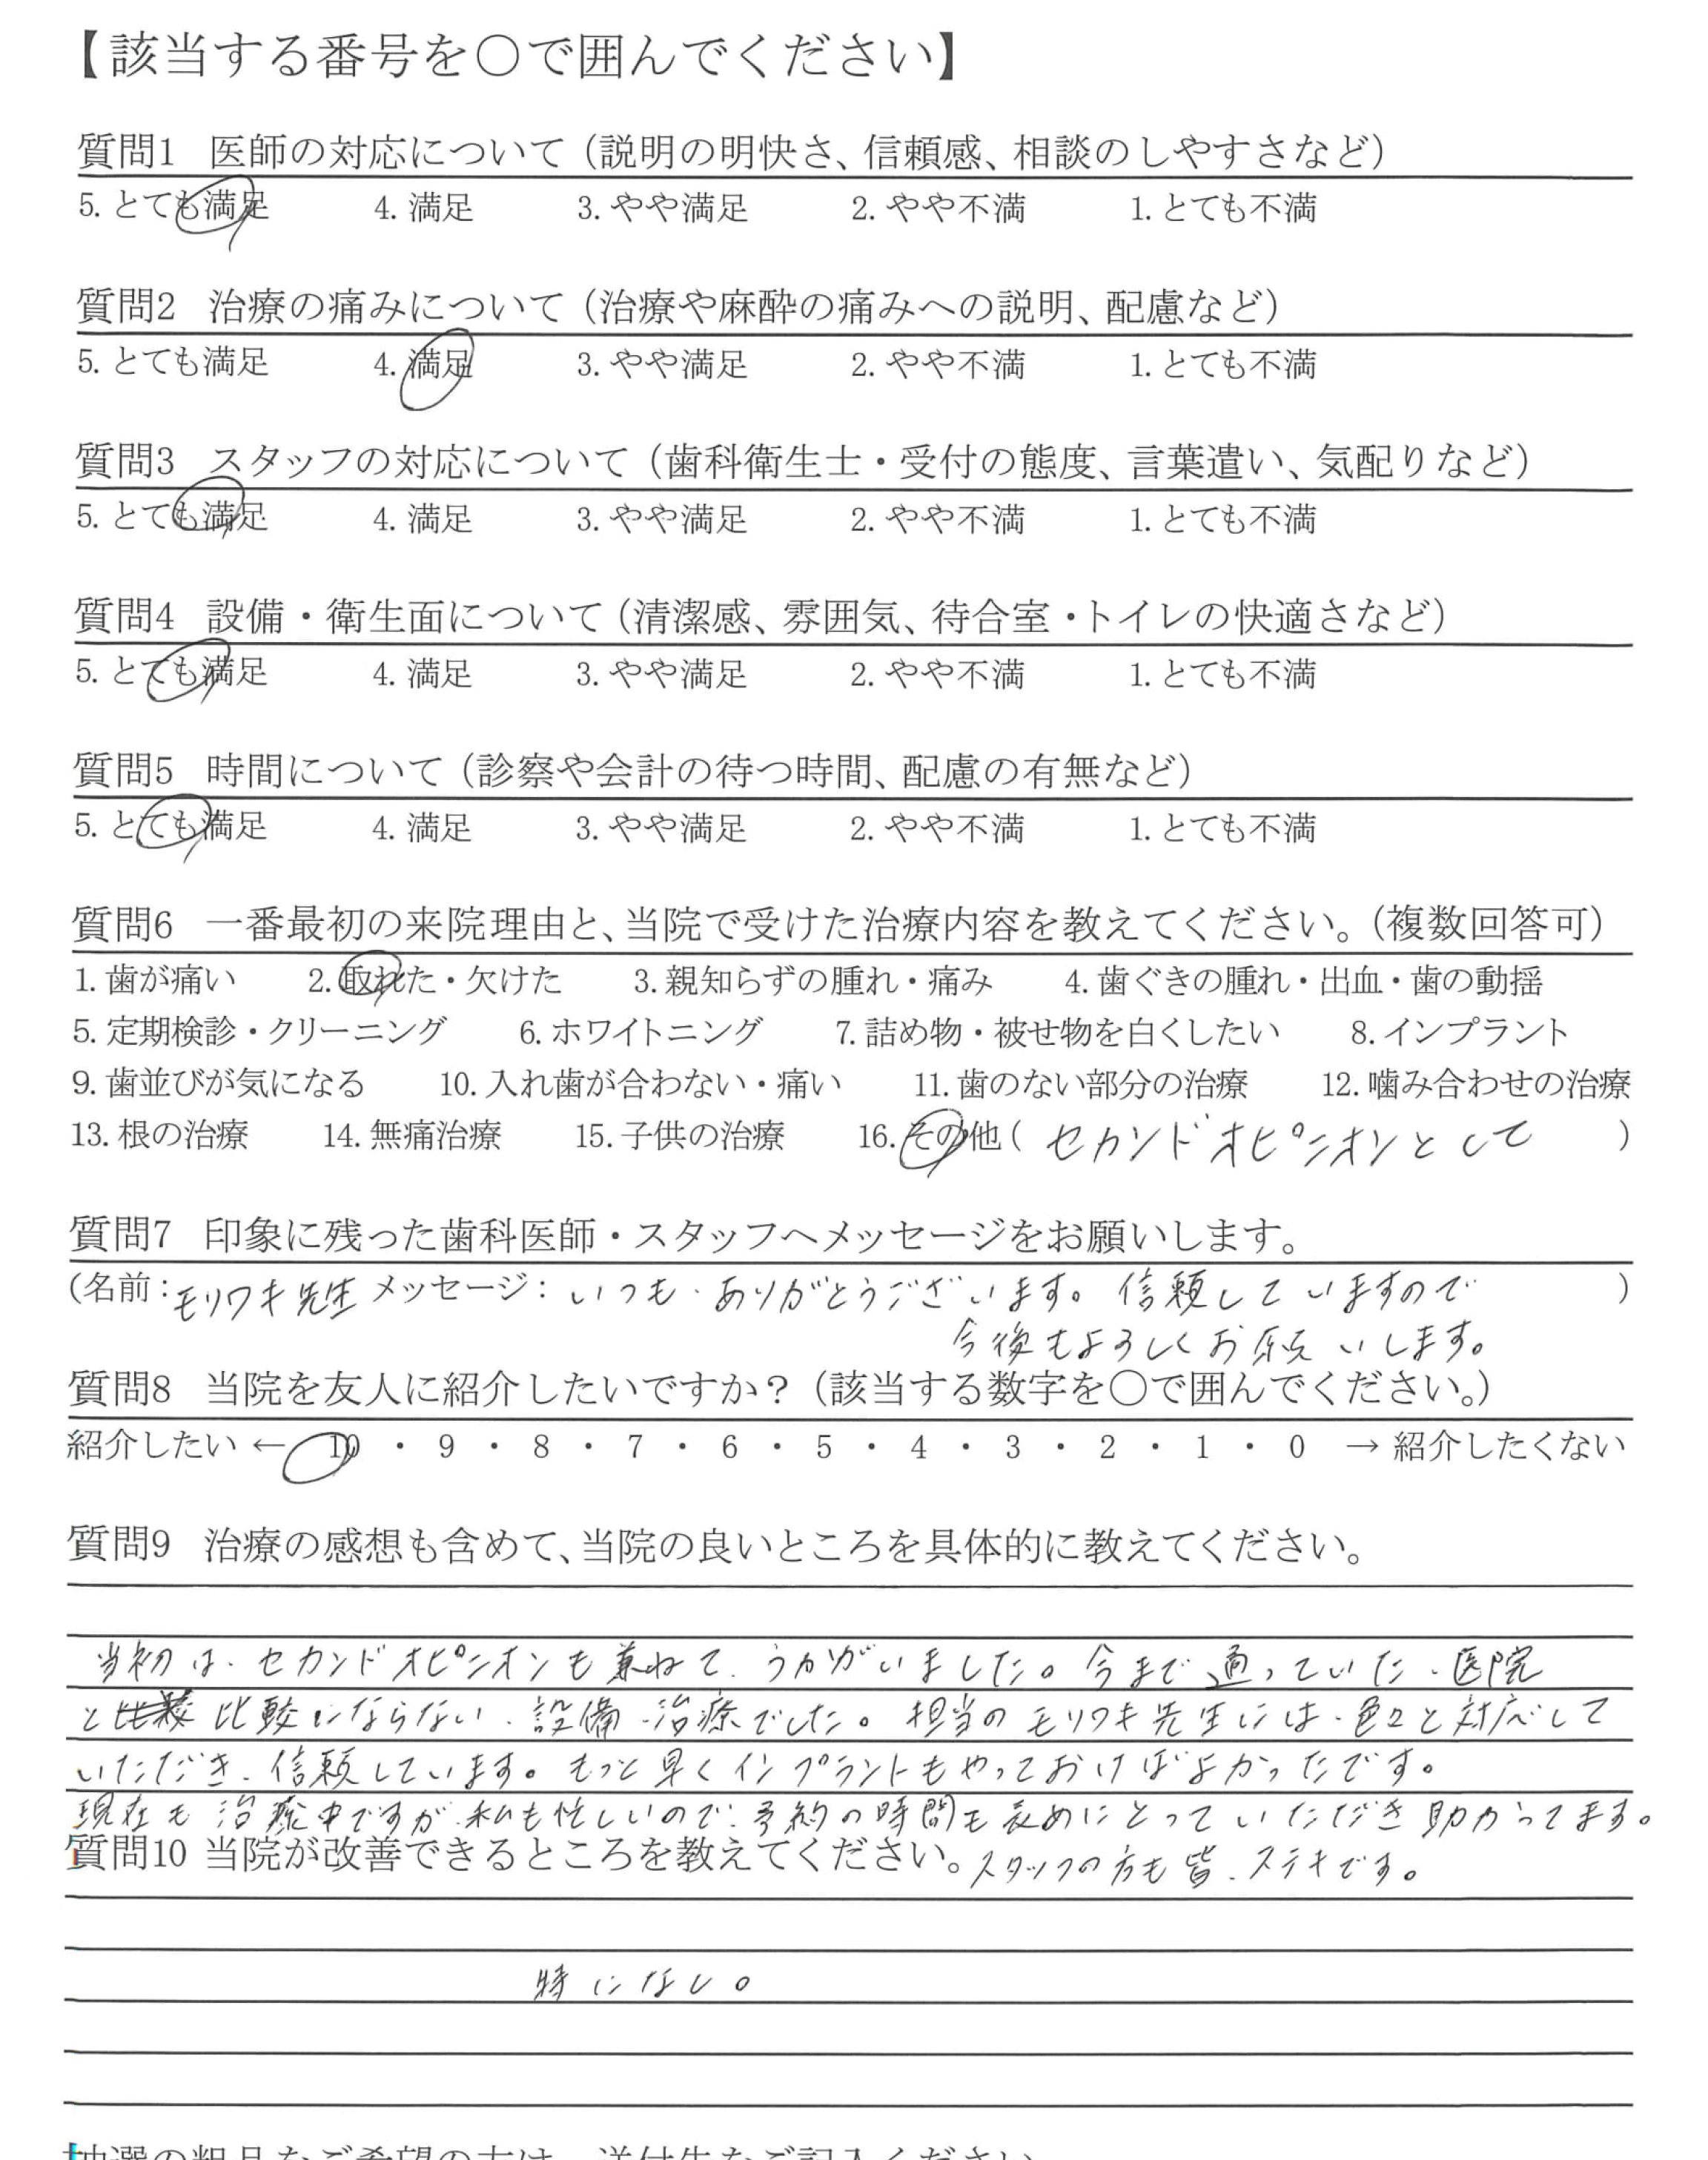 【該当する番号を〇で囲んでください】
質問1 医師の対応について（説明の明快さ、信頼感、相談のしやすさなど）
5. とても満足 4. 満足 3. やや満足 2. やや不満 1. とても不満
質問2 治療の痛みについて（治療や麻酔の痛みへの説明、配慮など）
5. とても満足 4. 満足 3. やや満足 2. やや不満 1. とても不満
質問3 スタッフの対応について（歯科衛生士・受付の態度、言葉遣い、気配りなど）
5. とても満足 4. 満足 3. やや満足 2. やや不満 1. とても不満
質問4 設備・衛生面について（清潔感、雰囲気、待合室・トイレの快適さなど）
5. とても満足 4. 満足 3. やや満足 2. やや不満 1. とても不満
質問5 時間について（診察や会計の待つ時間、配慮の有無など）
5. とても満足 4. 満足 3. やや満足 2. やや不満 1. とても不満
質問6 一番最初の来院理由と、当院で受けた治療内容を教えてください。（複数回答可）
1. 歯が痛い 2. 取れた・欠けた 3. 親知らずの腫れ・痛み 4. 歯ぐきの腫れ・出血・歯の動揺
5. 定期検診・クリーニング 6. ホワイトニング 7. 詰め物・被せ物を白くしたい 8. インプラント
9. 歯並びが気になる 10. 入れ歯が合わない・痛い 11. 歯のない部分の治療 12. 噛み合わせの治療
13. 根の治療 14. 無痛治療 15. 子供の治療 16. その他（セカンドオピニオンとして）
質問7 印象に残った歯科医師・スタッフへメッセージをお願いします。
（名前：モリワキ先生 メッセージ：いつも、ありがとうございます。信頼していますので）
今後もよろしくお願いします。
質問8 当院を友人に紹介したいですか？（該当する数字を〇で囲んでください。）
紹介したい ← 10 ・ 9 ・ 8 ・ 7 ・ 6 ・ 5 ・ 4 ・ 3 ・ 2 ・ 1 ・ 0 → 紹介したくない
質問9 治療の感想も含めて、当院の良いところを具体的に教えてください。
当初は、セカンドオピニオンも兼ねて、うかがいました。今まで通っていた、医院
と比較にならない、設備、治療でした。担当のモリワキ先生には、色々と対応して
いただき、信頼しています。もっと早くインプラントもやっておけばよかったです。
現在も治療中ですが、私も忙しいので、予約の時間も長めにとっていただき助かってます。
質問10 当院が改善できるところを教えてください。
スタッフの方も皆、ステキです。
特になし。